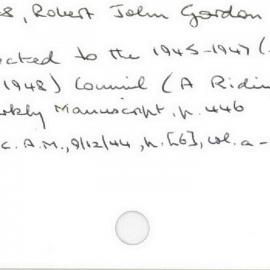 s, Robert John Gordon
ected to the 1945-1947 (
1948) Council (A Ridi
rkly Manuscript, p. 446
C.A.M., 9/12/44, p. [6], col. a -